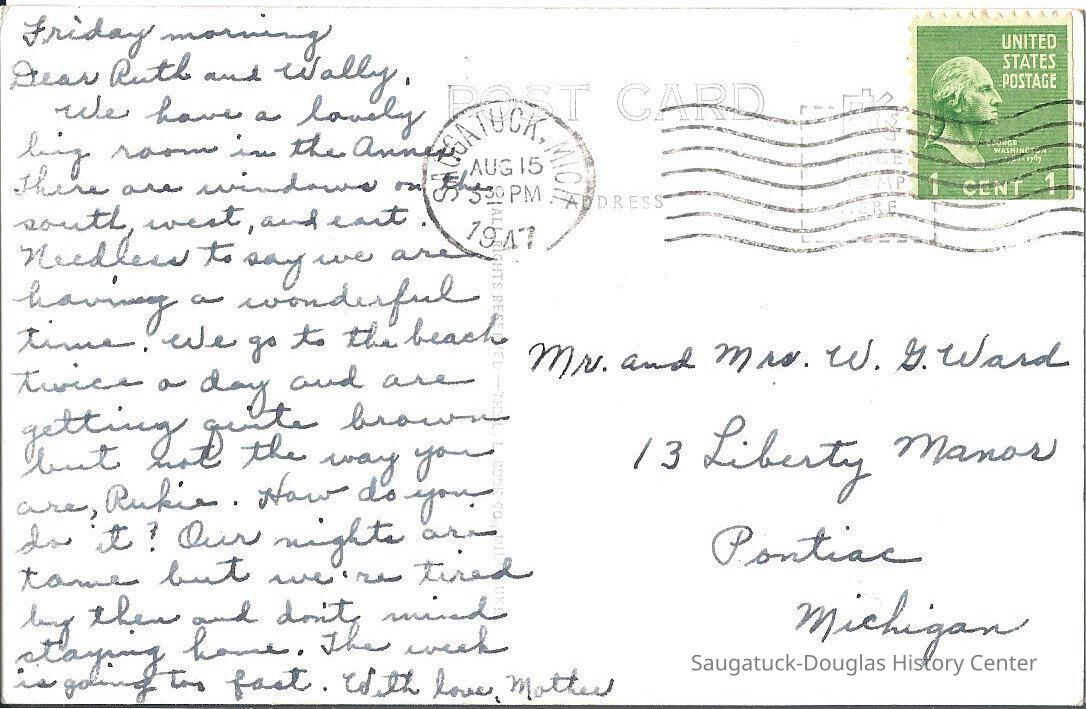 Friday morning
Dear Ruth and Wally,
We have a lovely
big room in the Annex
There are windows on the
south, west, and east.
Needless to say we are
having a wonderful
time. We go to the beach
twice a day and are
getting quite brown
but not the way you
are, Rukie. How do you
do it? Our nights are
tame but we're tired
by then and don't mind
staying home. The week
is going too fast. With love, Mother
POST CARD
SAUGATUCK, MICH.
AUG 15
5 30 PM
1947
ADDRESS
ALL RIGHTS RESERVED
HERE
UNITED
STATES
POSTAGE
GEORGE
WASHINGTON
1 CENT 1
Mr. and Mrs. W. G. Ward
13 Liberty Manor
Pontiac
Michigan
Saugatuck-Douglas History Center